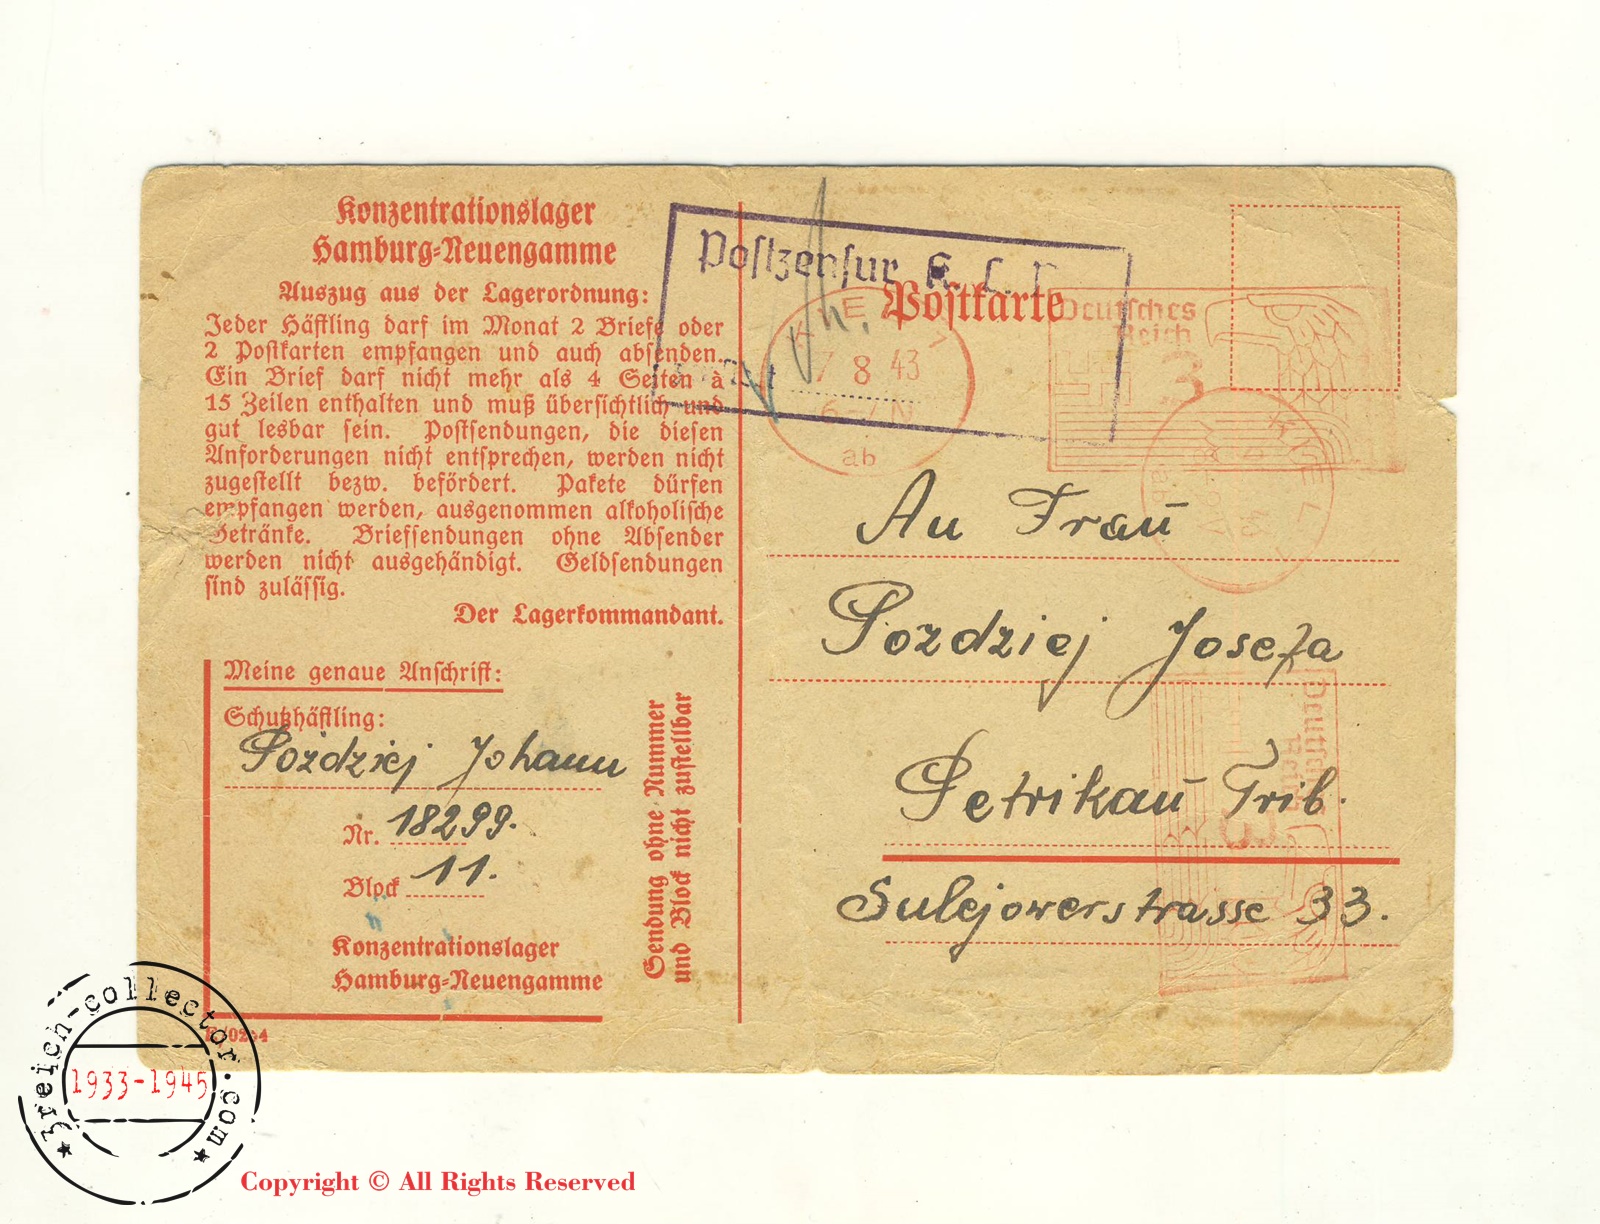 Konzentrationslager
Hamburg-Neuengamme
Auszug aus der Lagerordnung:
Jeder Häftling darf im Monat 2 Briefe oder
2 Postkarten empfangen und auch absenden.
Ein Brief darf nicht mehr als 4 Seiten à
15 Zeilen enthalten und muß übersichtlich und
gut lesbar sein. Postsendungen, die diesen
Anforderungen nicht entsprechen, werden nicht
zugestellt bezw. befördert. Pakete dürfen
empfangen werden, ausgenommen alkoholische
Getränke. Briefsendungen ohne Absender
werden nicht ausgehändigt. Geldsendungen
sind zulässig.
Der Lagerkommandant.
Meine genaue Anschrift:
Schutzhäftling:
Poździej Johann
Nr. 18299.
Block 11.
Konzentrationslager
Hamburg-Neuengamme
Sendung ohne Nummer
und Block nicht zustellbar
Postzensur K. L.
Postkarte
KIEL 1
7 8 43
6-7 N
ab
Deutsches
Reich
3
An Frau
Pozdziej Josefa
Petrikau Trib.
Sulejowerstrasse 33.
KIEL 1
ab
Deutsches
Reich
3
3reich-collector.com
1933-1945
Copyright © All Rights Reserved